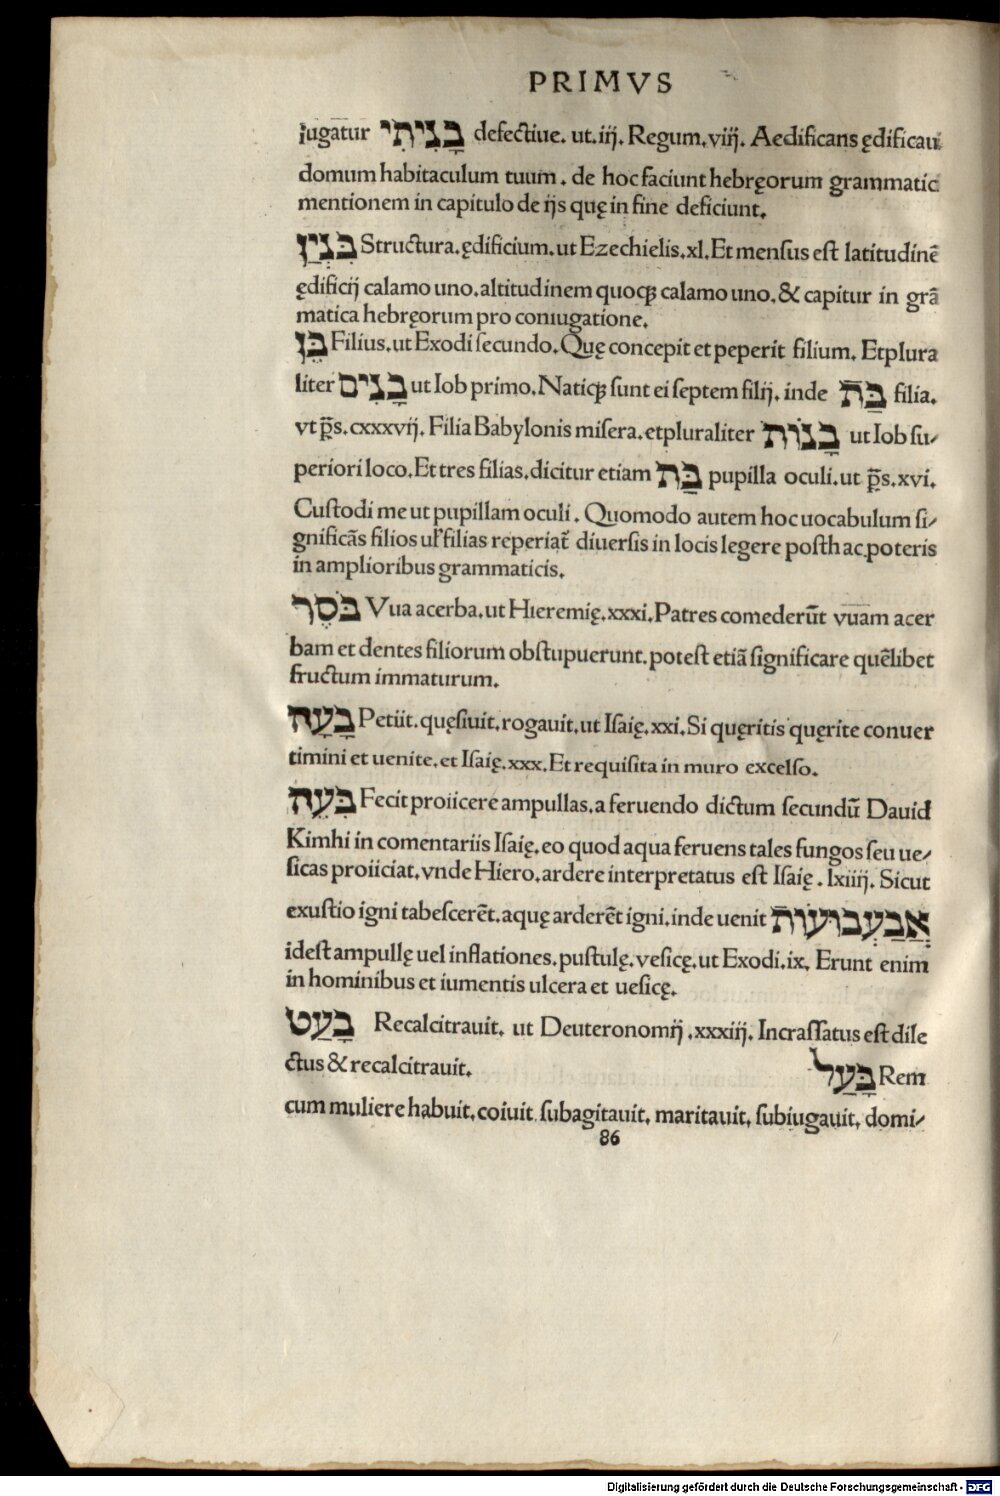 PRIMVS
iugatur בָּנִיתִי defectiue. ut.iij. Regum.viij. Aedificans ędificaui
domum habitaculum tuum. de hoc faciunt hebręorum grammatic
mentionem in capitulo de ijs quę in fine deficiunt.
בִּנְיַן Structura.ędificium.ut Ezechielis.xl.Et mensus est latitudinē
ędificij calamo uno.altitudinem quoqꝫ calamo uno.& capitur in grā
matica hebręorum pro coniugatione.
בֵּן Filius.ut Exodi secundo.Quę concepit et peperit filium. Et plura
liter בָּנִים ut Iob primo.Natiqꝫ sunt ei septem filij. inde בַּת filia.
vt p̄s.cxxxvij. Filia Babylonis misera.et pluraliter בָּנוֹת ut Iob su/
periori loco.Et tres filias.dicitur etiam בַּת pupilla oculi.ut p̄s.xvi.
Custodi me ut pupillam oculi. Quomodo autem hoc uocabulum si/
gnificās filios ul' filias reperiat᷑ diuersis in locis legere posthac poteris
in amplioribus grammaticis.
בֹּסֶר Vua acerba.ut Hieremię.xxxi.Patres comederūt vuam acer
bam et dentes filiorum obstupuerunt.potest etiā significare quēlibet
fructum immaturum.
בָּעָה Petiit.quęsiuit.rogauit.ut Isaię.xxi.Si quęritis quęrite conuer
timini et uenite.et Isaię.xxx.Et requisita in muro excelso.
בִּעָה Fecit proiicere ampullas.a feruendo dictum secundū Dauid
Kimhi in comentariis Isaię.eo quod aqua feruens tales fungos seu ue/
sicas proiiciat.vnde Hiero.ardere interpretatus est Isaię. lxiiij. Sicut
exustio igni tabescerēt.aquę arderēt igni.inde uenit אֲבַעְבּוּעוֹת
idest ampullę uel inflationes.pustulę.vesicę.ut Exodi.ix. Erunt enim
in hominibus et iumentis ulcera et uesicę.
בָּעַט Recalcitrauit. ut Deuteronomij .xxxiij. Incrassatus est dile
ctus & recalcitrauit. בָּעַל Rem
cum muliere habuit.coiuit subagitauit. maritauit. subiugauit. domi/
86
Digitalisierung gefördert durch die Deutsche Forschungsgemeinschaft - DFG